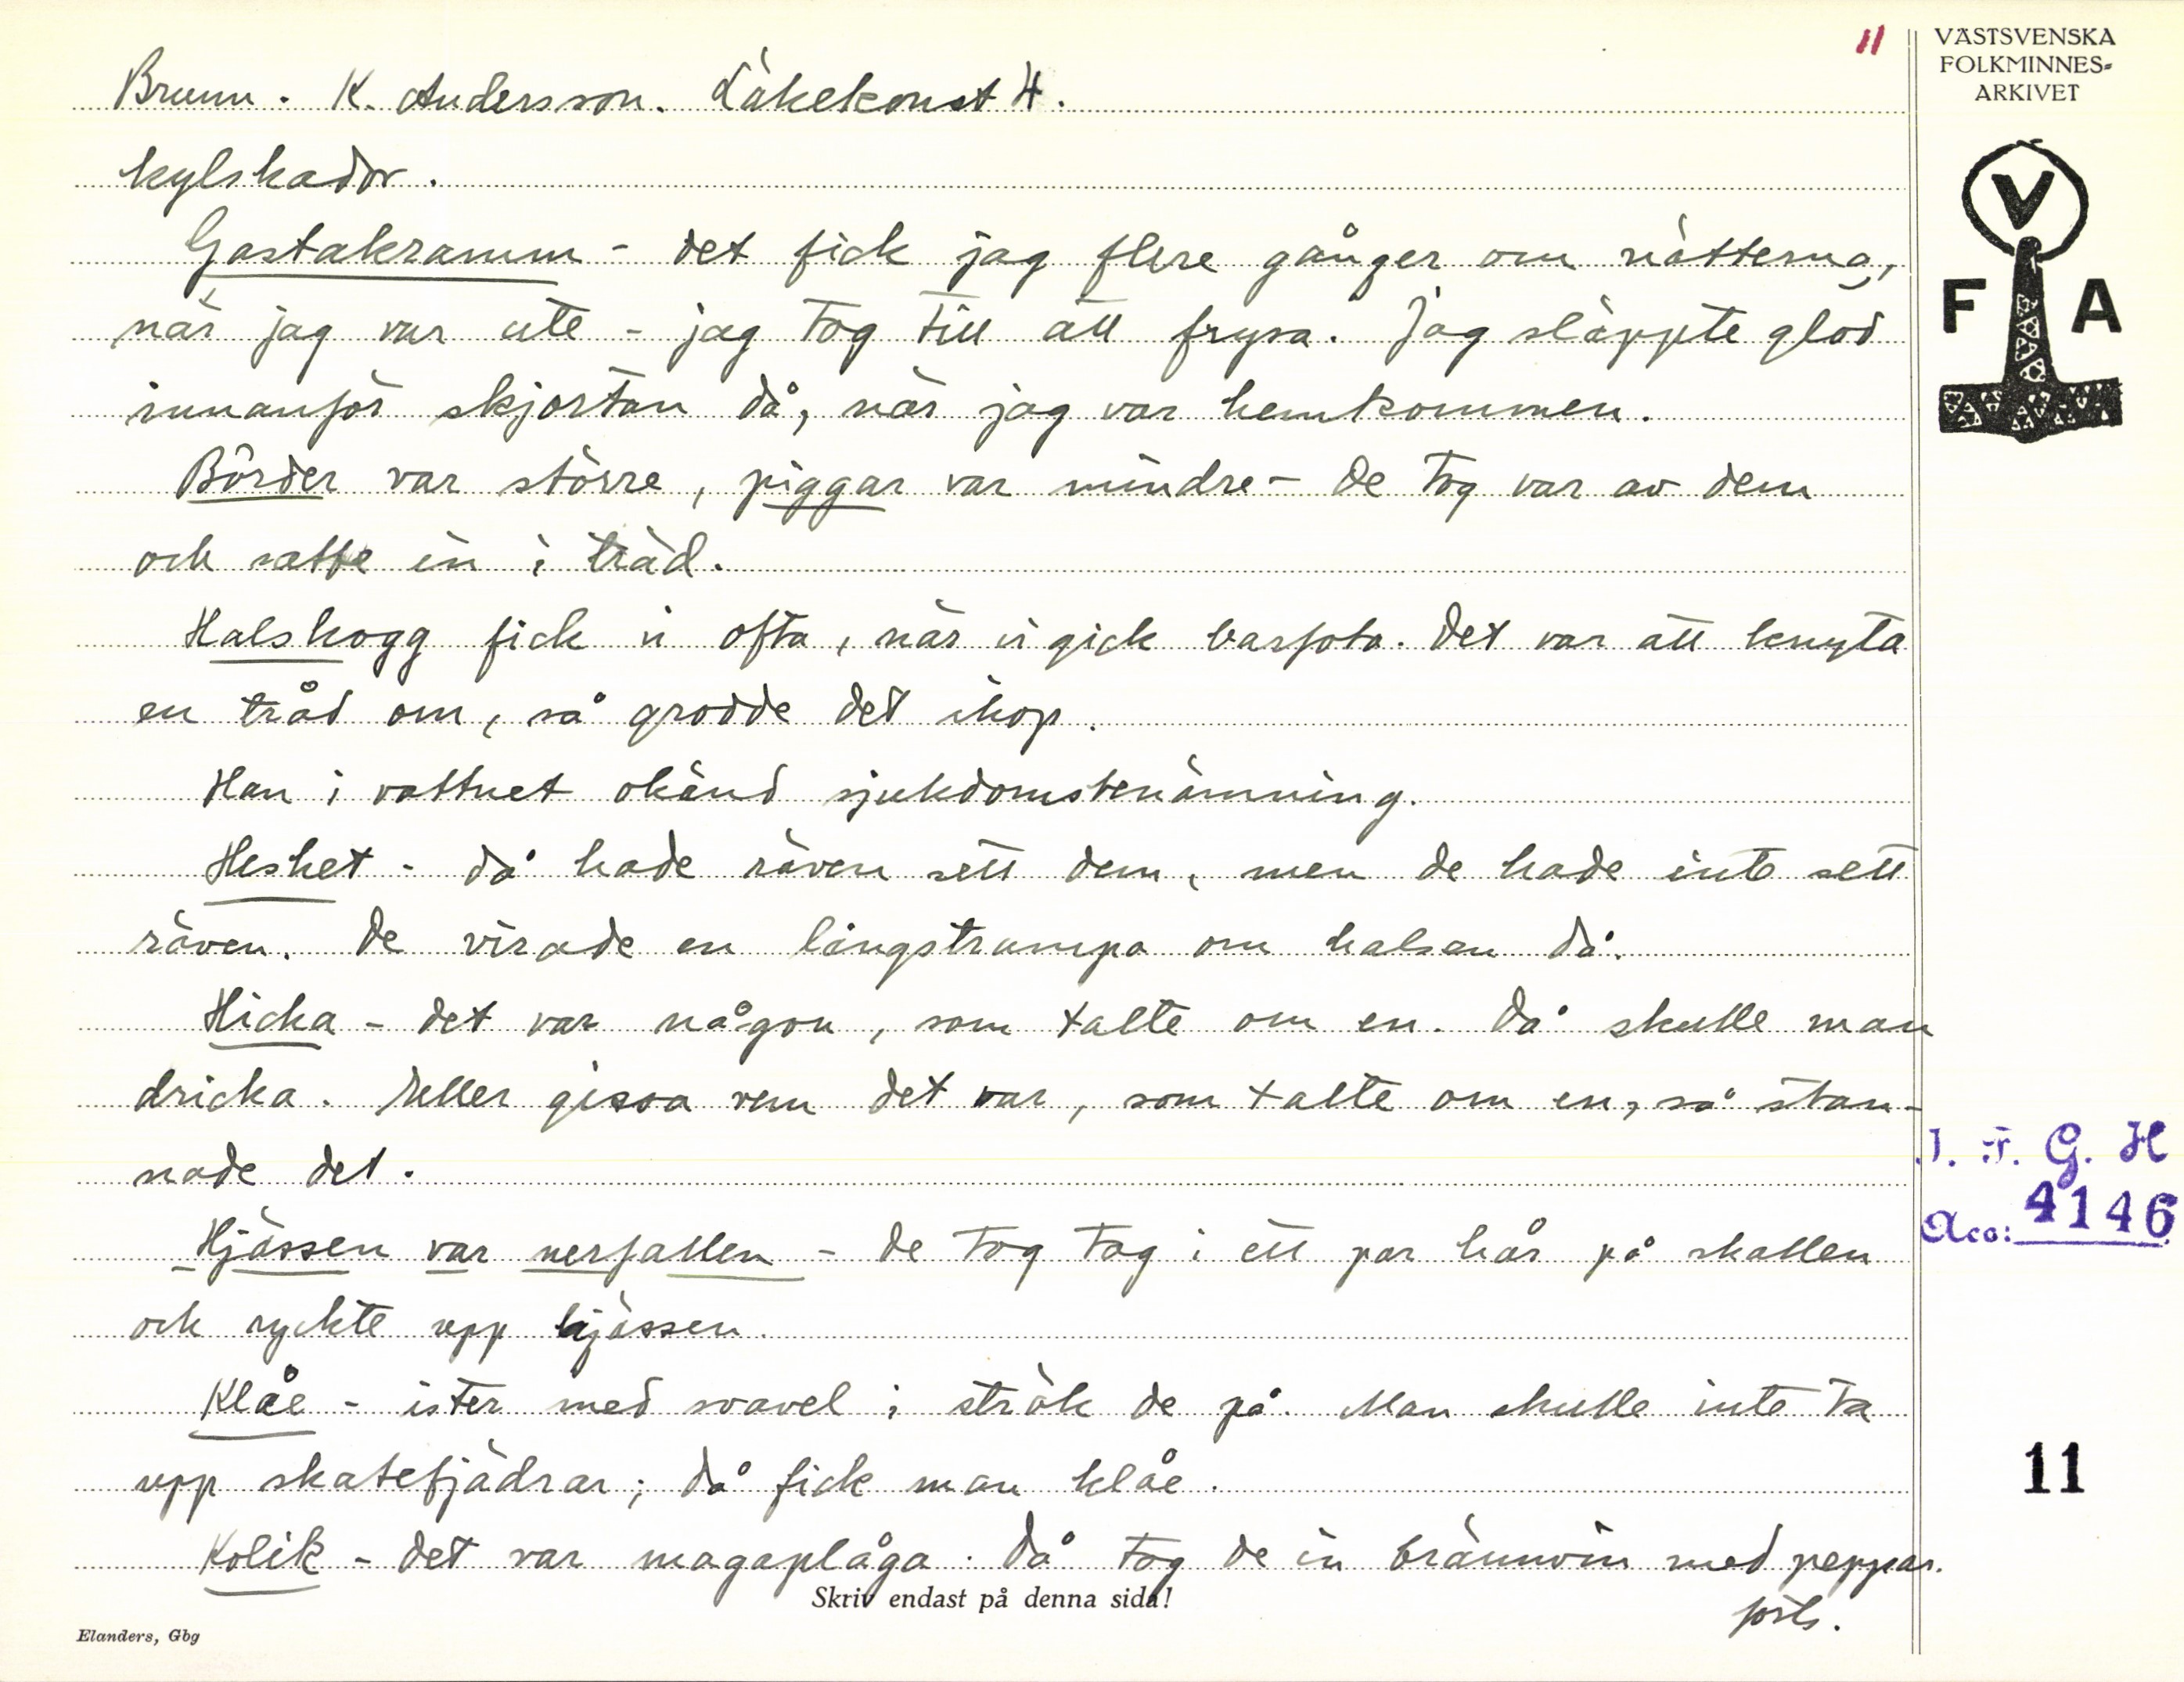 11
VÄSTSVENSKA
FOLKMINNES-
ARKIVET
V
F A
Brunn. K. Andersson. Läkekonst 4.
kylskador.
Gastakramm - det fick jag flere gånger om nätterna,
när jag var ute - jag tog till att frysa. Jag släppte glöd
innanför skjortan då, när jag var hemkommen.
Börder var större, piggar var mindre - de tog var av dem
och satte in i träd.
Halskogg fick vi ofta, när vi gick barfota. Det var att knyta
en tråd om, så grodde det ihop.
Han i vattnet okänd sjukdomsbenämning.
Heshet - då hade räven sett dem, men de hade inte sett
räven. De virade en långstrumpa om halsen då.
Hicka - det var någon, som talte om en. Då skulle man
dricka. Eller gissa vem det var, som talte om en, så stan-
nade det.
Hjässen var nerfallen - de tog tag i ett par hår på skallen
och ryckte upp hjässen.
Klåe - ister med svavel i strök de på. Man skulle inte ta
upp skatefjädrar; då fick man klåe.
Kolik - det var magaplåga. Då tog de in brännvin med peppar.
forts.
I. F. G. H
Acc: 4146
11
Skriv endast på denna sida!
Elanders, Gbg